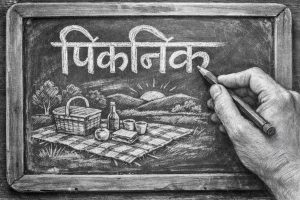 पिकनिक